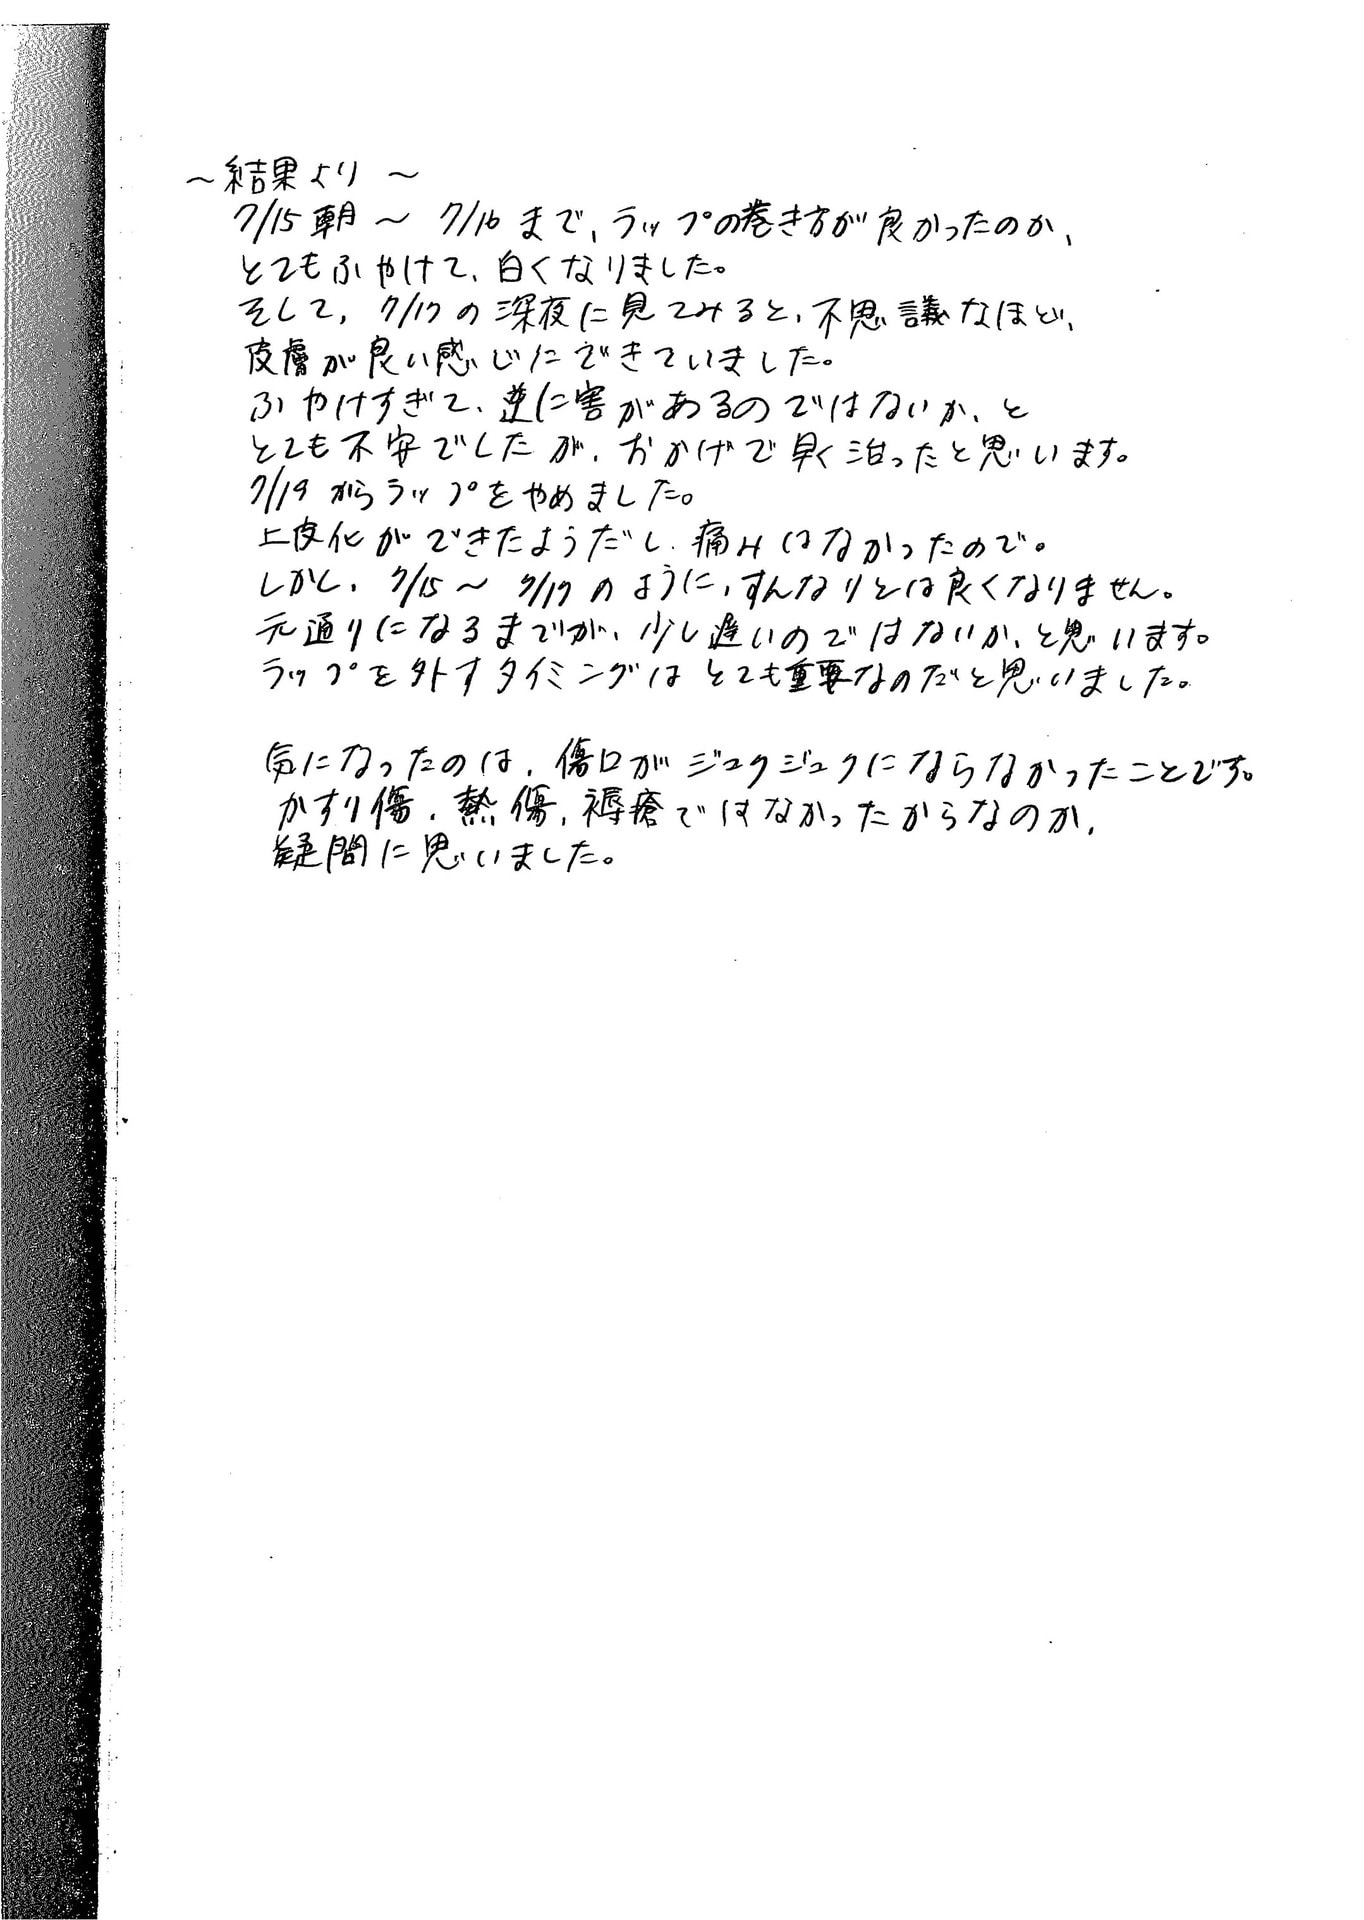 ～結果より～
7/15朝～7/16まで、ラップの巻き方が良かったのか、
とてもふやけて、白くなりました。
そして、7/17の深夜に見てみると、不思議なほど、
皮膚が良い感じにできていました。
ふやけすぎて、逆に害があるのではないか、と
とても不安でしたが、おかげで早く治ったと思います。
7/19からラップをやめました。
上皮化ができたようだし、痛みはなかったので。
しかし、7/15～7/17のように、すんなりとは良くなりません。
元通りになるまでが、少し遅いのではないか、と思います。
ラップを外すタイミングはとても重要なのだと思いました。
気になったのは、傷口がジュクジュクにならなかったことです。
かすり傷、熱傷、褥瘡ではなかったからなのか、
疑問に思いました。